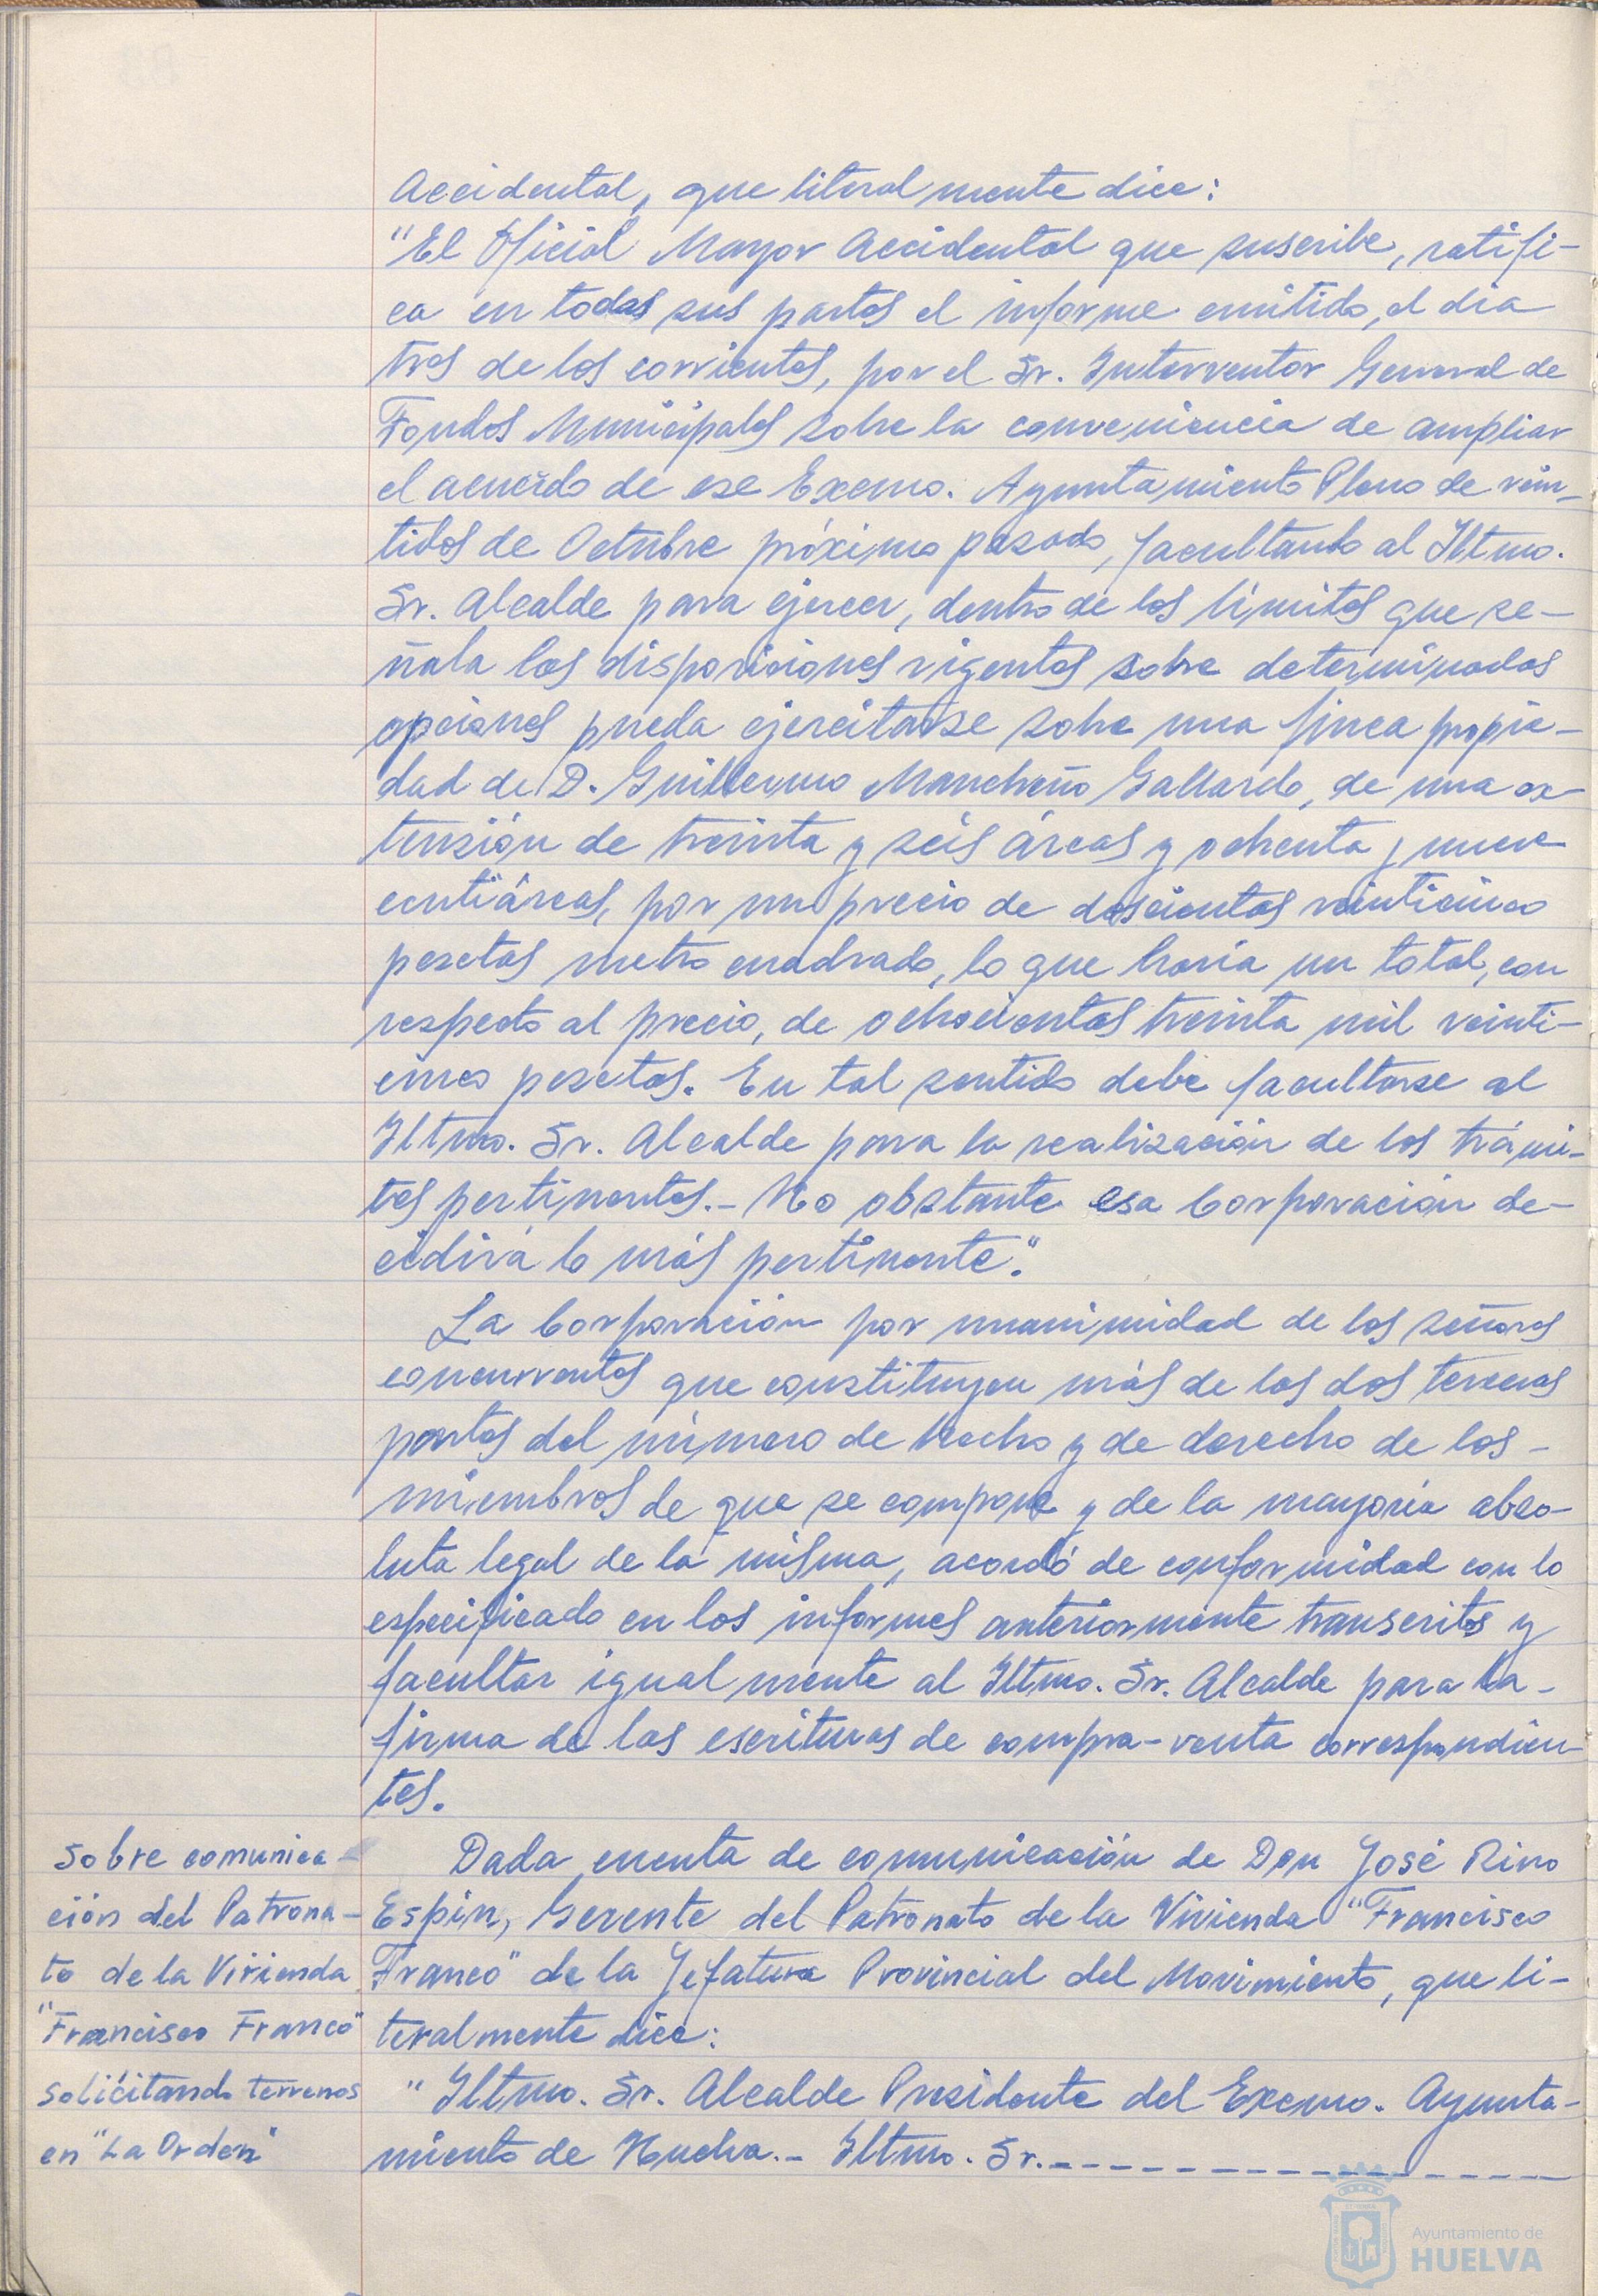 Accidental, que literalmente dice:
"El Oficial Mayor Accidental que suscribe, ratifi-
ca en todas sus partes el informe emitido, el dia
tres de los corrientes, por el Sr. Interventor General de
Fondos Municipales sobre la conveniencia de ampliar
el acuerdo de ese Excmo. Ayuntamiento Pleno de vein-
tidos de Octubre próximo pasado, facultando al Iltmo.
Sr. Alcalde para ejercer, dentro de los límites que se-
ñala las disposiciones vigentes sobre determinadas
opciones pueda ejercitarse sobre una finca propie-
dad de D. Guillermo Mancheño Gallardo, de una ex-
tensión de treinta y seis áreas y ochenta y nueve
centiáreas, por un precio de doscientas veinticinco
pesetas metro cuadrado, lo que haria un total, con
respecto al precio, de ochocientas treinta mil veinti-
cinco pesetas. En tal sentido debe facultarse al
Iltmo. Sr. Alcalde para la realización de los trámi-
tes pertinentes.- No obstante esa Corporación de-
cidirá lo más pertinente".
La Corporación por unanimidad de los señores
concurrentes que constituyen más de las dos terceras
partes del número de hecho y de derecho de los-
miembros de que se compone y de la mayoría abso-
luta legal de la misma, acordó de conformidad con lo
especificado en los informes anteriormente transcritos y
facultar igualmente al Iltmo. Sr. Alcalde para la-
firma de las escrituras de compra-venta correspondien-
tes.
Sobre comunica-
ción del Patrona-
to de la Vivienda
"Francisco Franco"
solicitando terrenos
en "La Orden"
Dada cuenta de comunicación de Don José Rino
Espin, Gerente del Patronato de la Vivienda "Francisco
Franco" de la Jefatura Provincial del Movimiento, que li-
teralmente dice:
"Iltmo. Sr. Alcalde Presidente del Excmo. Ayunta-
miento de Huelva.- Iltmo. Sr.-------------------
Ayuntamiento de
HUELVA